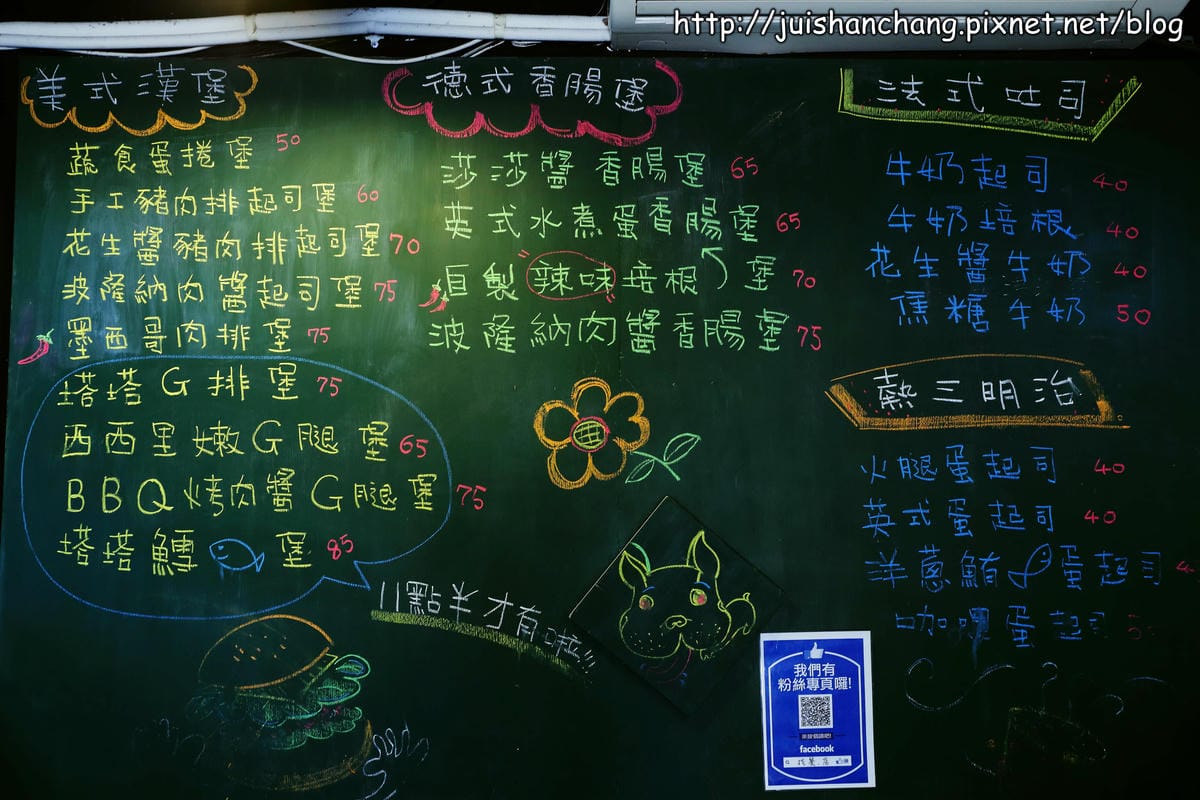 http://juishanchang.pixnet.net/blog
美式漢堡
蔬食蛋捲堡 50
手工豬肉排起司堡 60
花生醬豬肉排起司堡 70
波隆納肉醬起司堡 75
墨西哥肉排堡 75
塔塔G排堡 75
西西里嫩G腿堡 65
BBQ烤肉醬G腿堡 75
塔塔鱈堡 85
11點半才有啦!!
德式香腸堡
莎莎醬香腸堡 65
英式水煮蛋香腸堡 65
自製辣味培根堡 70
波隆納肉醬香腸堡 75
法式吐司
牛奶起司 40
牛奶培根 40
花生醬牛奶 40
焦糖牛奶 50
熱三明治
火腿蛋起司 40
英式蛋起司 40
洋蔥鮪蛋起司
咖哩蛋起司
我們有
粉絲專頁囉!
facebook